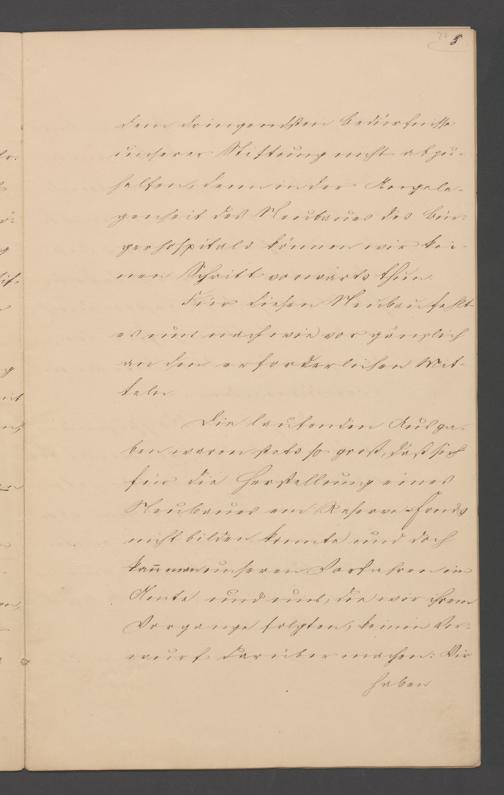 5
dem dringendsten Bedürfnisse
unserer Stiftung nicht abzu-
helfen, denn in der Angele-
genheit des Neubaues des Bür-
gerhospitals können wir kei-
nen Schritt vorwärts thun.
Für diesen Neubau fehlt
es uns nach wie vor gänzlich
an den erforderlichen Mit-
teln.
Die laufenden Ausga-
ben waren stets so groß, daß sich
für die Herstellung eines
Neubaues ein Reserve-Fonds
nicht bilden konnte und doch
kann man unseren Vorfahren im
Amte und uns, die wir ihrem
Vorgange folgten, keinen Vor-
wurf darüber machen. Wir
haben